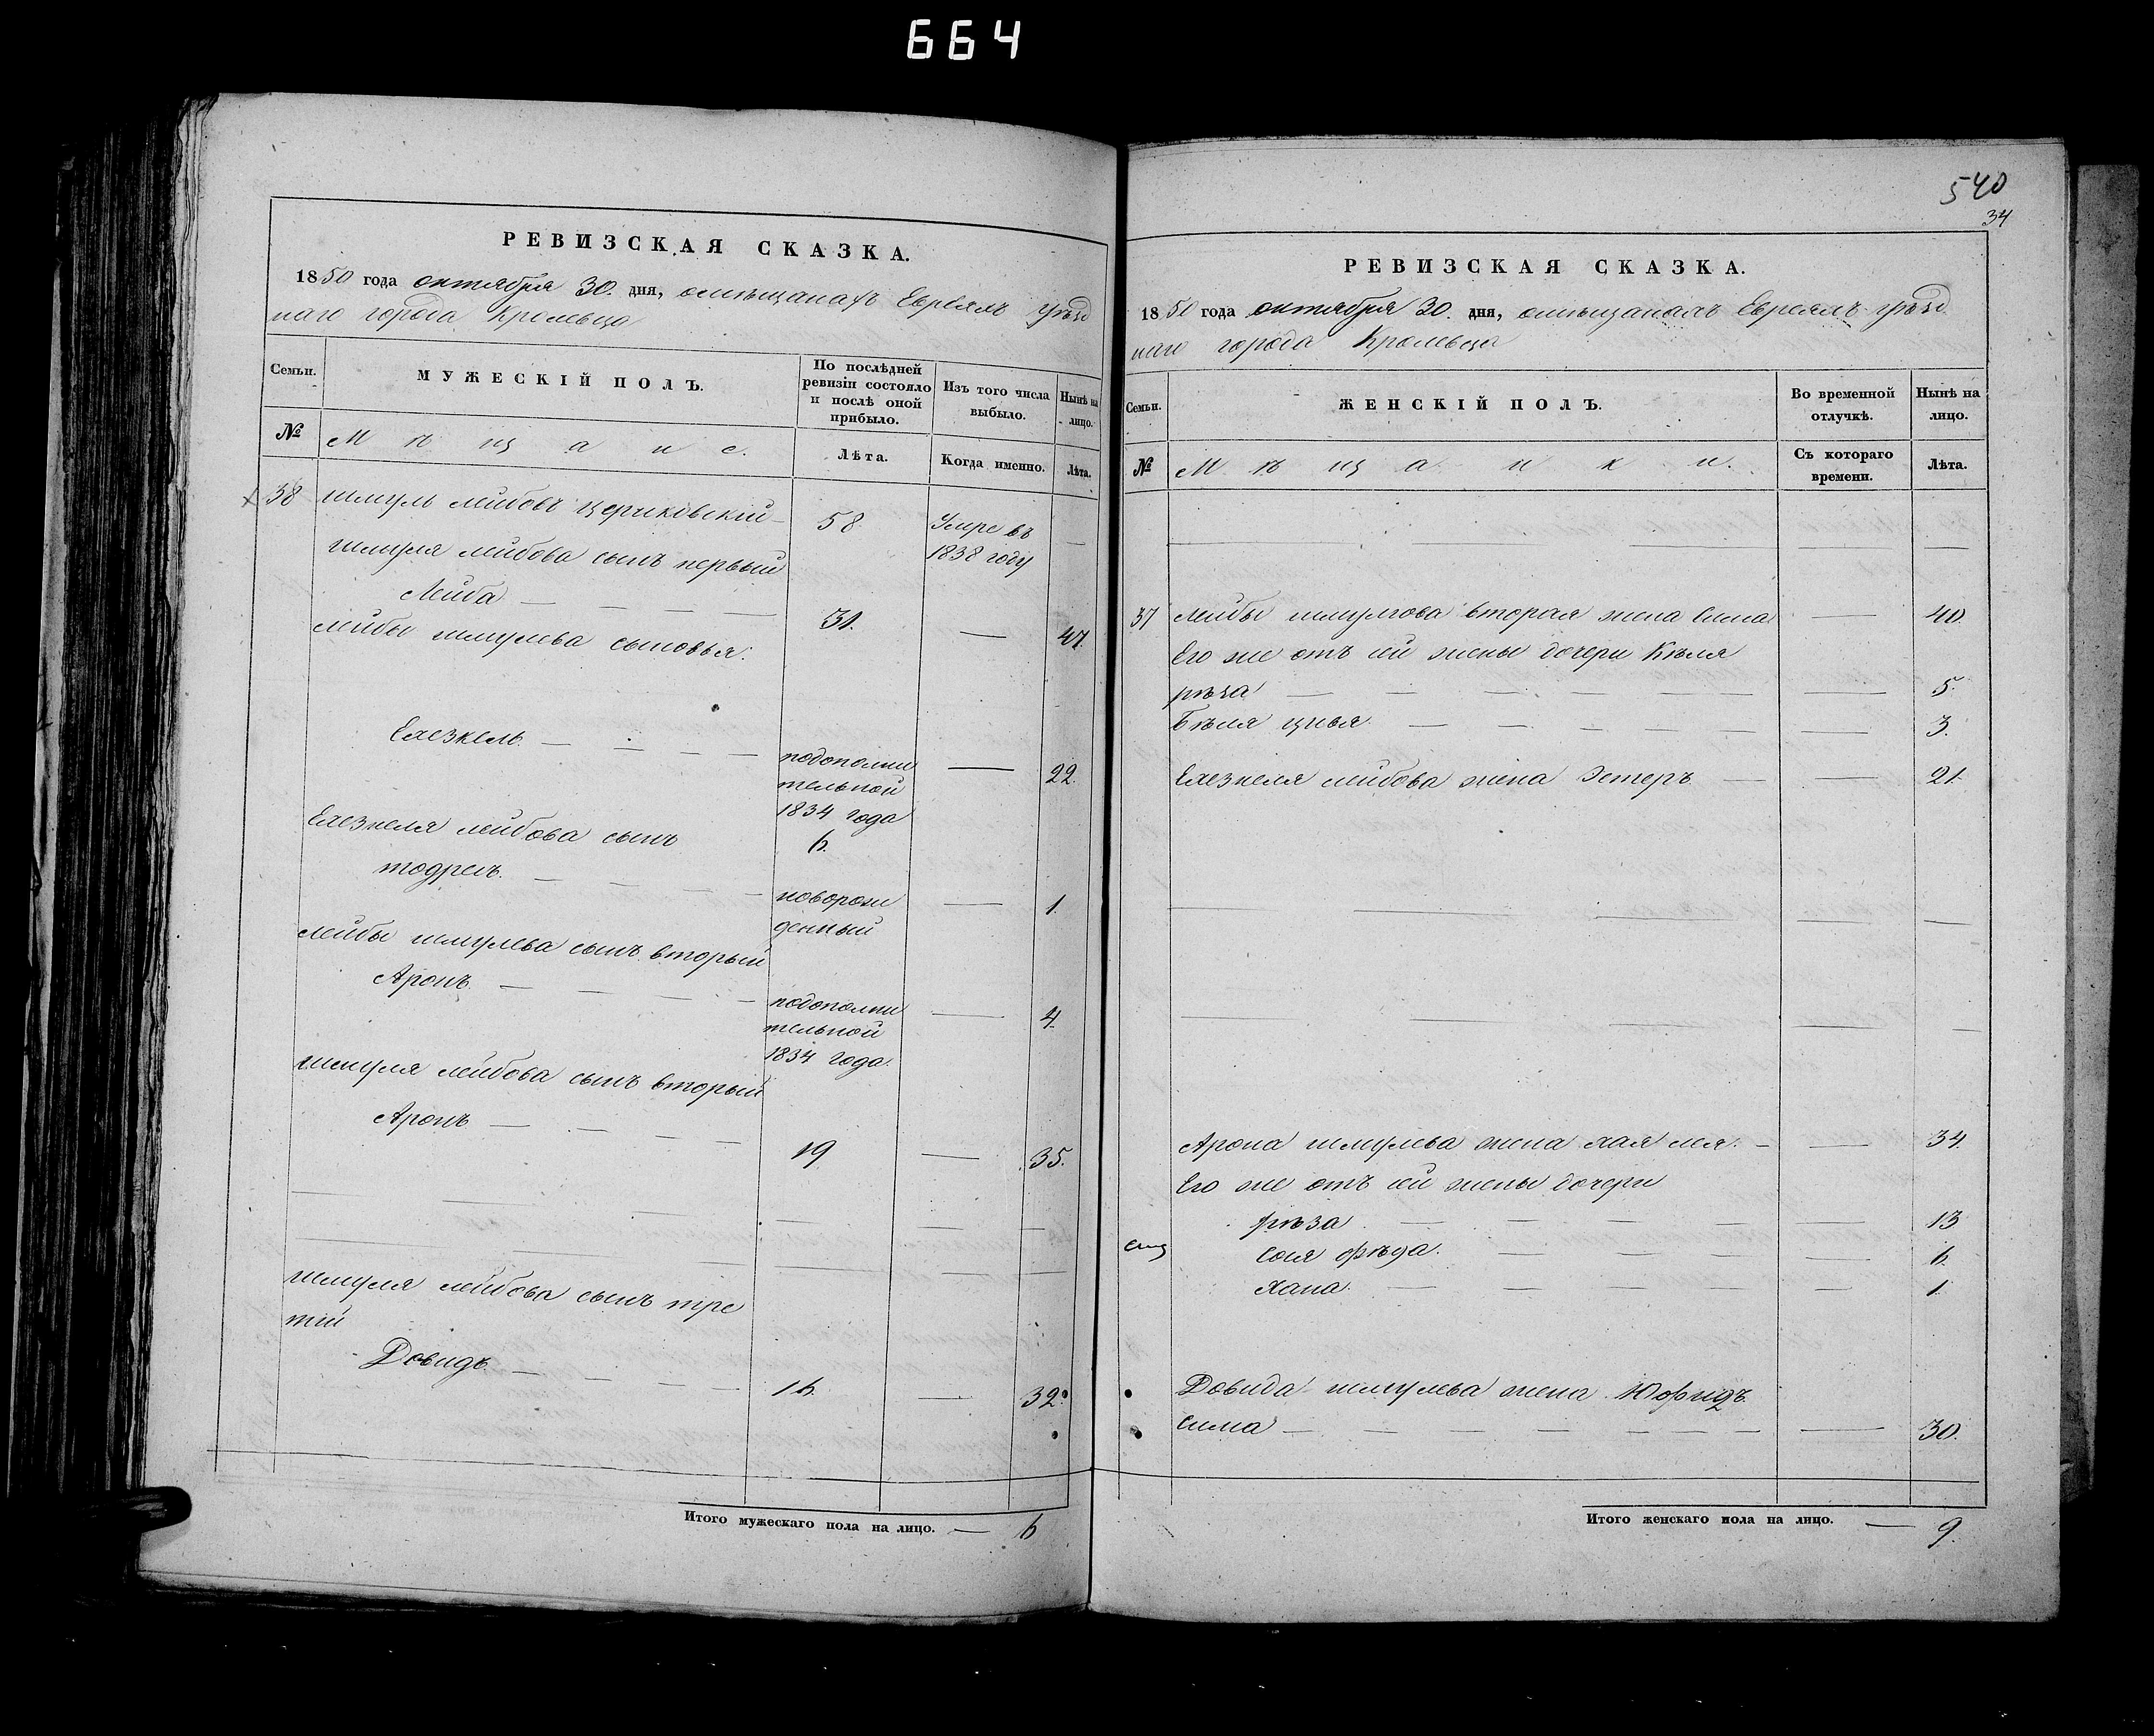 664
РЕВИЗСКАЯ СКАЗКА.
1850 года октября 30. дня, омѣщанахъ Евреяхъ уѣзд
наго города Кролевца
Семьи.
МУЖЕСКІЙ ПОЛЪ.
По послѣдней
ревизіи состояло
и послѣ оной
прибыло.
Изъ того числа
выбыло.
Нынѣ на
лицо.
№
Мѣщане.
Лѣта.
Когда именно.
Лѣта.
38 шмуль лейбовъ Цериковскій 58 Умре въ
1838 году
шмуля лейбова сынъ первый
Лейба 31. 47.
лейбы шмулева сыновья:
Ехезкель подополни 22.
тельной
1834 года
6.
Ехезкеля лейбова сынъ
тодресъ. новорож 1.
денный
лейбы шмулева сынъ вторый
Аронъ подополни 4.
тельной
1834 года.
шмуля лейбова сынъ вторый
Аронъ 19 35.
шмуля лейбова сынъ тре
тій
Довидъ 16. 32.
Итого мужескаго пола на лицо. 6
540
34
РЕВИЗСКАЯ СКАЗКА.
1850 года октября 30. дня, омѣщанахъ Евреяхъ уѣзд
наго города Кролевца
Семьи.
ЖЕНСКІЙ ПОЛЪ.
Во временной
отлучкѣ.
Нынѣ на
лицо.
№
Мѣщанки.
Съ котораго
времени.
Лѣта.
37 Лейбы шмулгова вторая жена Сима 40.
Его же отъ ей жены дочери Кѣля
рѣза 5.
Бѣля цивя 3.
Ехезкеля лейбова жена Эстеръ 21.
Арона шмулева жена хая лея. 34.
Его же отъ ей жены дочери
рѣза 13
сося фрѣда. 6.
Хана. 1.
Довида шмулева жена Юфидъ
сима 30.
Итого женскаго пола на лицо. 9.